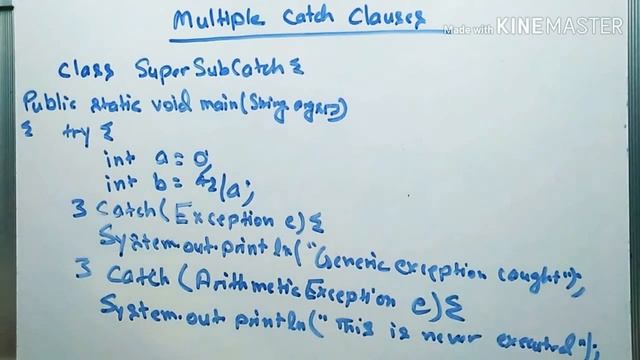 Multiple Catch Clauses
Made with KINEMASTER
class SuperSubCatch {
Public static void main(String args[])
{ try {
int a = 0;
int b = 42/a;
} catch(Exception e) {
System.out.println("Generic exception caught");
} catch (ArithmeticException e) {
System.out println("This is never executed");